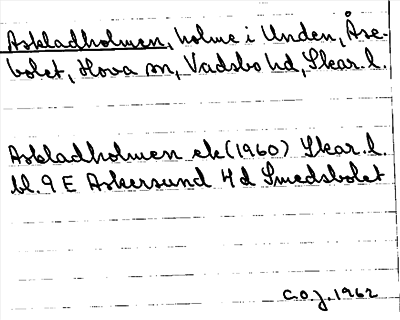 Askladholmen, holme i Unden, Åse-
bolet, Hova sn, Vadsbo hd, Skar. l.
Askladholmen ek (1960) Skar. l.
bl. 9 E Askersund 4 d Smedsbolet
C.O.J. 1962